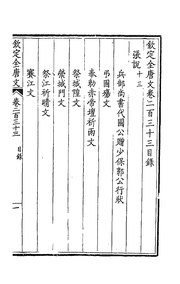 欽定全唐文卷二百三十三目錄
張說十三
兵部尚書代國公贈少保郭公行狀
弔國殤文
奉勅赤帝壇祈雨文
祭城隍文
祭城門文
祭江祈晴文
賽江文
欽定全唐文
卷二百三十三
目錄
一